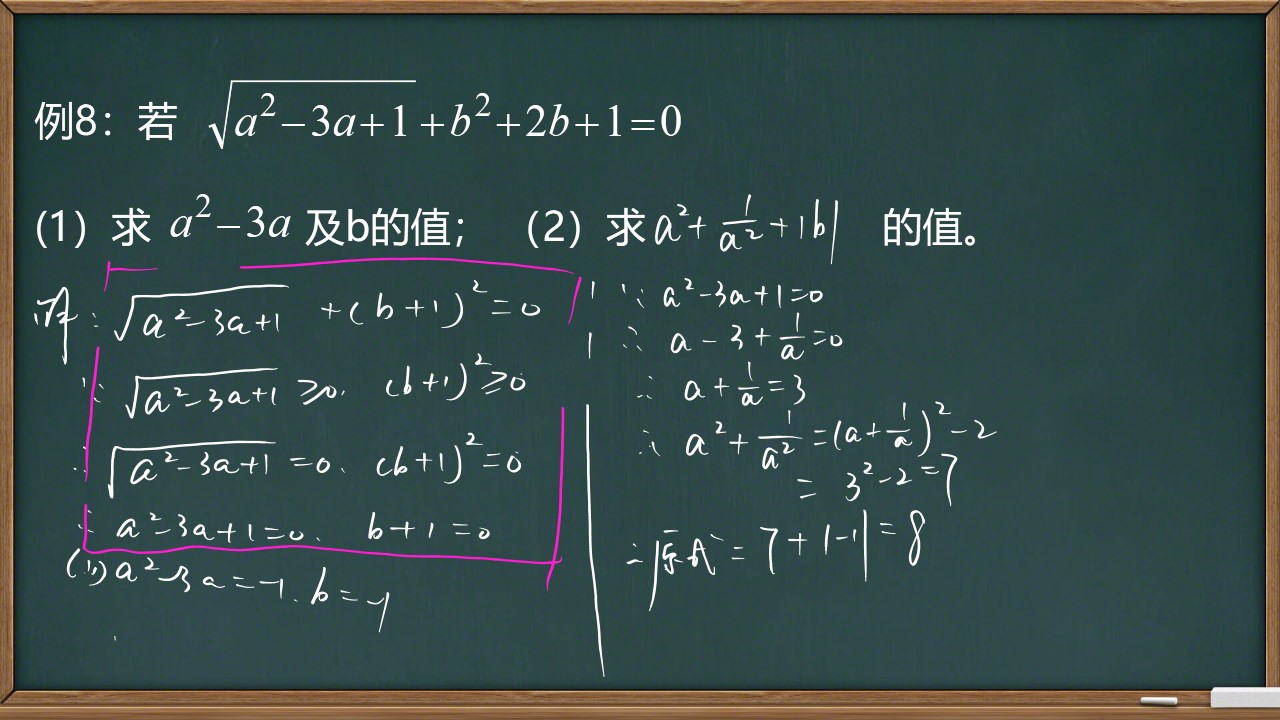 例8：若 √(a²−3a+1) + b²+2b+1=0
(1) 求 a²−3a 及b的值； （2）求 a²+1/a²+|b| 的值。
解：√(a²-3a+1) +(b+1)²=0
∵ √(a²-3a+1) ≥0. (b+1)²≥0
∴ √(a²-3a+1) =0. (b+1)²=0
∴ a²-3a+1=0. b+1=0
(1) a²-3a=-1. b=-1
∵ a²-3a+1=0
∴ a-3+1/a=0
∴ a+1/a=3
∴ a²+1/a²=(a+1/a)²-2
= 3²-2=7
∴原式=7+|-1|=8